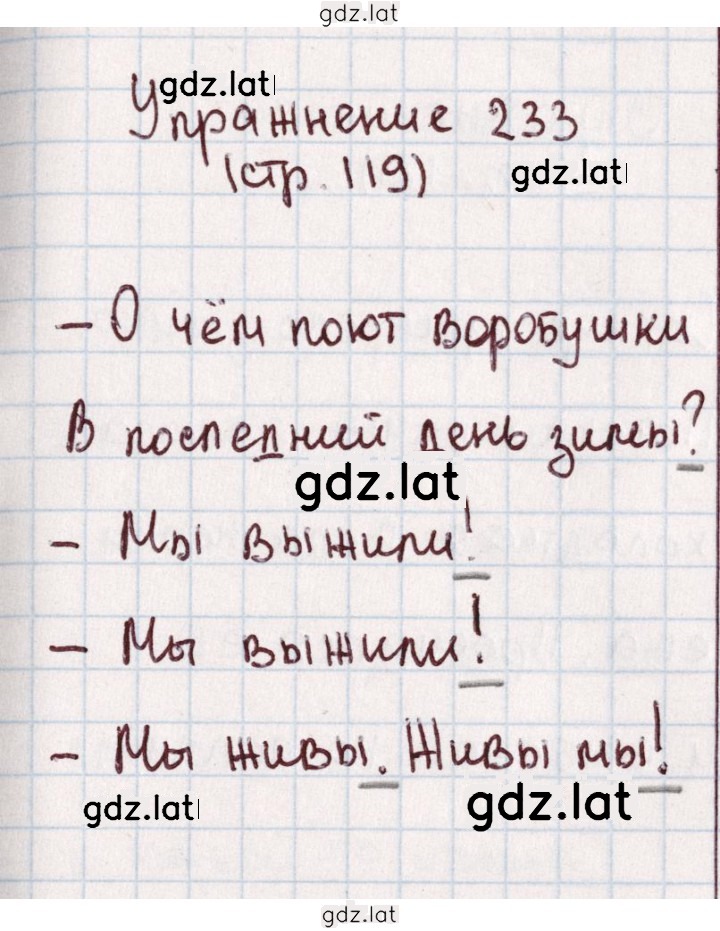 gdz.lat
gdz.lat
Упражнение 233
(стр. 119)
gdz.lat
- О чём поют воробушки
В последний день зимы?
gdz.lat
- Мы выжили!
- Мы выжили!
- Мы живы. Живы мы!
gdz.lat
gdz.lat
gdz.lat